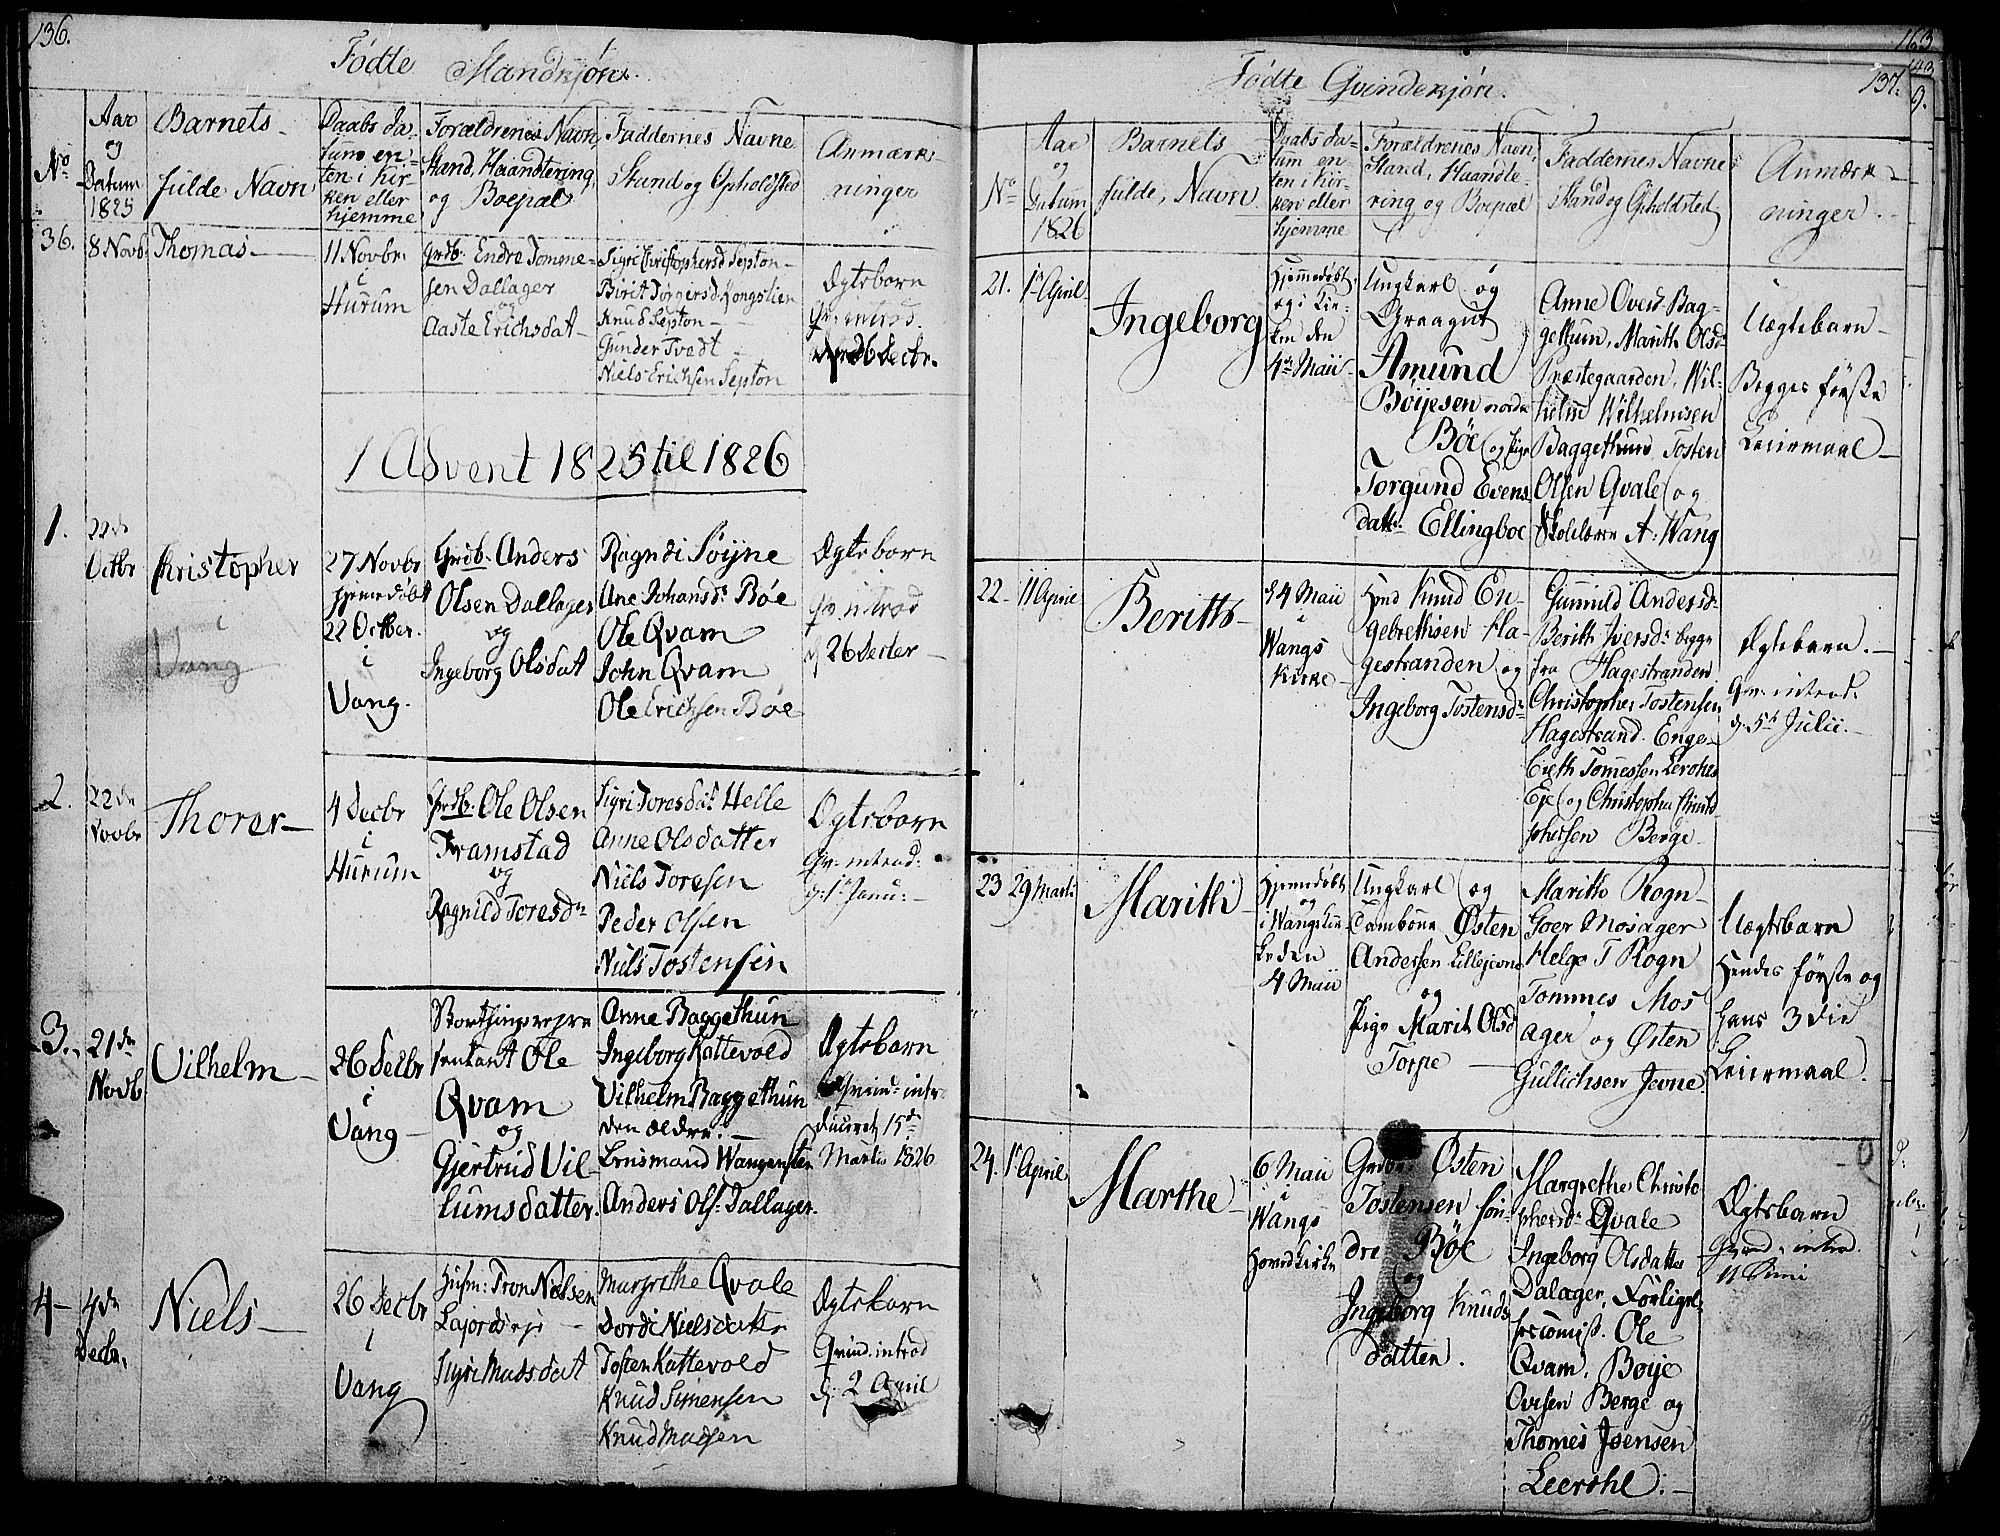 136.
Fødte Mandkjön.
No
Aar
og
Datum
1825
Barnets
fulde Navn
Daabs da-
tum en-
ten i Kir-
ken eller
hjemme
Forældrenes Navn,
Stand, Haandtering,
og Boepæl
Faddernes Navne
Stand og Opholdsted
Anmærk-
ninger
36.
8 Novb.
Thomas
11 Novbr.
i
Hurum
Grdb. Endre Tomme-
sen Dallager
og
Aaste Erichsdat
Sigri Christophersd Septon
Birit Jørgersd. Kongslien
Knud Septon
Gunder Tvedt
Niels Erichsen Septon
Ægteborn
Qv: introd.
26 Decbr.
1 Advent 1825 til 1826
1.
22de
Octbr
Christopher
i
Vang
27 Novbr
hjemedøbt
22 Octber.
i
Vang.
Grdb. Anders
Olsen Dallager
og
Ingeborg Olsdat
Ragndi Søyne
Ane Johansdr Böe
Ole Qvam
John Qvam
Ole Erichsen Bøe
Ægteborn
Qv introd
d 26 Decber
2.
22de
Novbr
Thorer
4 Decbr
i
Hurum
Grdb. Ole Olsen
Framstad
og
Ragnild Toresdr
Sigri Toresdat Helle
Anne Olsdatter
Niels Toresen
Peder Olsen
Niels Tostensen
Ægteborn
Qv: introd:
d: 1te Janu:
3.
21de
Novb
Vilhelm
26 Decbr
i
Vang
Storthingsrepre
sentant Ole
Qvam
og
Gjertrud Vil-
lumsdatter.
Anne Baggethun
Ingeborg Kattevold
Vilhelm Baggethun
den ældre.
Lensmand Wangensten
Anders Ols. Dallager.
Ægteborn
Qvind: intro
duceret 15de
Martii 1826
4
4de
Decbr.
Niels
26 Decbr
i
Vang
Husm: Tron Nielsen
Lajordseje
Sigri Madsdat
Margrethe Qvale
Dordi Nielsdatter
Tosten Kattevold
Knud Simensen
Knud Madsen
Ægteborn
Qvind. introd
d: 2 April
163
143
137.
9.
Födte Qvindekjön.
No
Aar
og
Datum
1826
Barnets
fulde Navn
Daabs da-
tum en
ten i Kir-
ken eller
hjemme
Forældrenes Navn,
Stand, Haandte-
ring og Boepæl
Faddernes Navne
Stand og Opholdsted
Anmærk-
ninger.
21.
1te April
Ingeborg
Hjemmedøbt
og i Kir-
ken den
4de Maii
Ungkarl og
Amund
Böijesen nordre
Böe og Pige
Torgund Evens
datter Ellingboe
Anne Overs. Bag-
gethun, Marith Olsdr
Præstegaarden, Wil-
helm Wilhelmsen
Baggethun, Tosten
Olsen Qvale og
Skolelærer A. Wang
Uægtebarn
Begges første
Leiermaal
22
11 April
Beritte
d 4 Maii
i
Wangs
Kirke
Knud En-
gebrethsen Ha-
gestranden og
Ingeborg Tostensdr
Gunnild Andersdr
Berith Iversdr begge
fra Hagestranden
Christopher Tostensen
Hagestrand. Enge-
breth Tomessen Lerohes
Eje og Christopher Christo
phersen Berge
Ægtebarn.
Qv: introd.
d. 5te Julii.
23
29 Marti
Marith
Hjemmedøbt
og
i Wangs Kir-
ke den
4 Maii
Ungkarl og
Østen
Andersen Lillejevne
og
Pige Marit Olsd
Torpe
Maritte Rogn
Goer Mosager
Helge T Rogn
Tommes Mos
ager og Østen
Gullichsen Jevne
Uægtebarn
Hendes første og
hans 3die
Leiermaal.
24.
1te April
Marthe
6 Maii
i
Wangs
Hovedkirke
Østen
Tostensen Søn-
dre Böe
og
Ingeborg Knuds
datter.
Margrethe Christo
phersdr Qvale
Ingeborg Olsdatter
Dalager, Forligel-
secomiss. Ole
Qvam, Böije
Oversen Berge og
Thomes Joensen
Leerohl.
Ægtebarn
Qvind. introd.
11 Juni